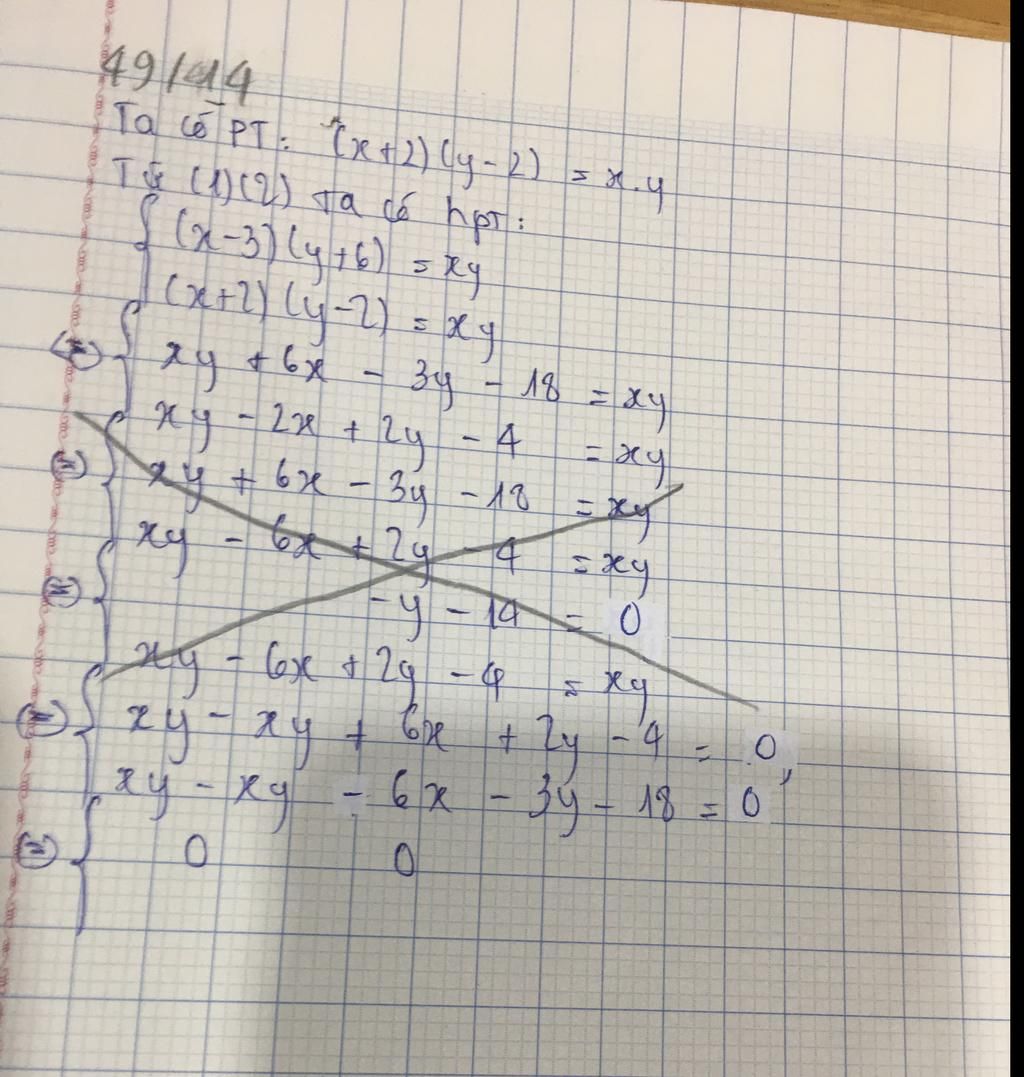 49/44
Ta có PT: (x+2)(y-2) = x.y
Từ (1)(2) ta có hpt:
(x-3)(y+6) = xy
(x+2)(y-2) = xy
(=) xy + 6x - 3y - 18 = xy
xy - 2x + 2y - 4 = xy
(=) xy + 6x - 3y - 18 = xy
xy - 6x + 2y - 4 = xy
(=) -y - 14 = 0
xy - 6x + 2y - 4 = xy
(=) xy - xy + 6x + 2y - 4 = 0,
xy - xy - 6x - 3y - 18 = 0
(=) 0 0